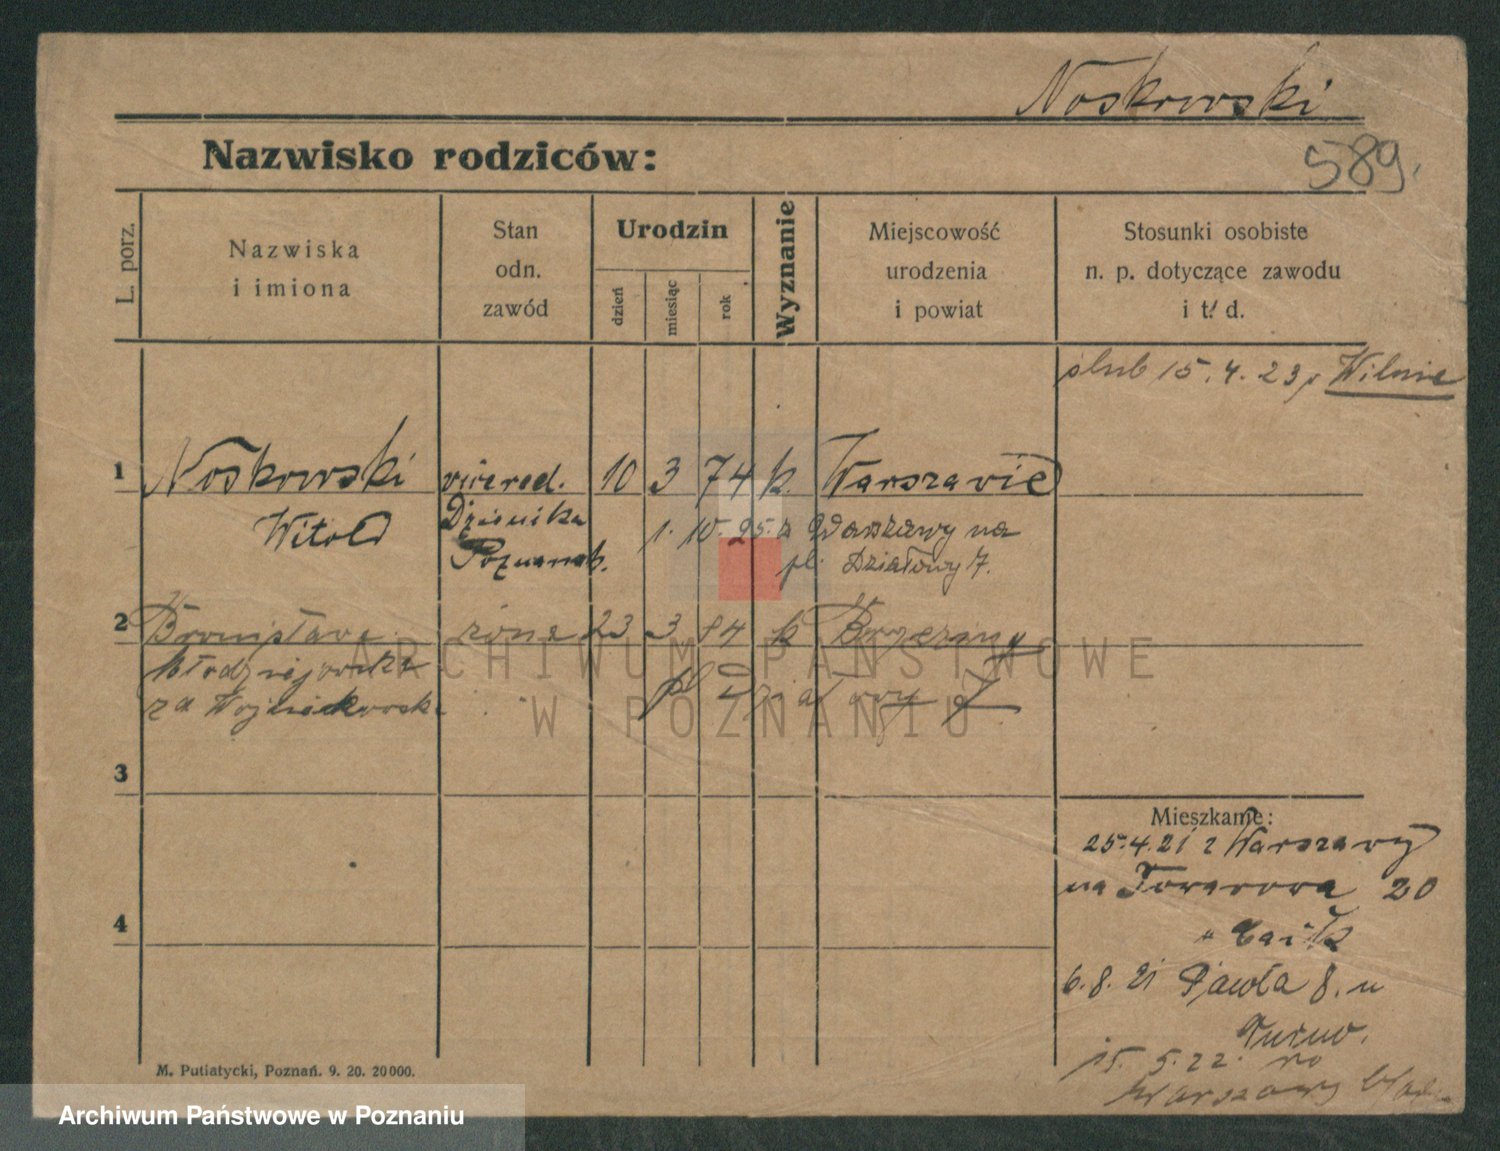 Noskowski
Nazwisko rodziców:
589.
L. porz.
Nazwiska
i imiona
Stan
odn.
zawód
Urodzin
dzień
miesiąc
rok
Wyznanie
Miejscowość
urodzenia
i powiat
Stosunki osobiste
n. p. dotyczące zawodu
i t. d.
ślub 15.4.23 Wilnie
1 Noskowski wicered. 10 3 74 k. Warszawie
Witold Dziennika 1. 10. 25. z Warszawy na
Poznańsk. pl. Działowy 7.
2 Bronisława żona 23 3 84 k Brzeziny
Młodziejowska
za Wojciechowsk. pl Działowy 7
3
4
Mieszkanie:
25.4.21 z Warszawy
na Towarowa 20
6.8.21 Pawła 8. u
Turno.
15. 5. 22. do
Warszawy
M. Putiatycki, Poznań. 9. 20. 20000.
ARCHIWUM PAŃSTWOWE
W POZNANIU
Archiwum Państwowe w Poznaniu